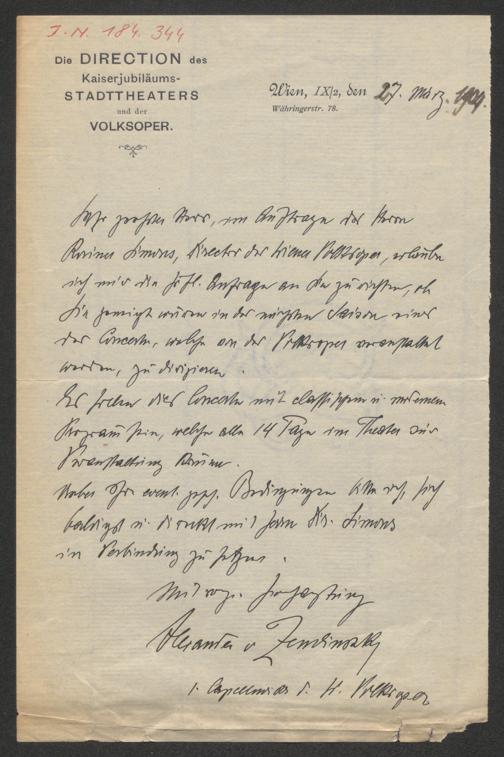 I.N. 184.344
Die DIRECTION des
Kaiserjubiläums-
STADTTHEATERS
und der
VOLKSOPER.
Wien, IX/2, den 27. März 1909.
Währingerstr. 78.
Sehr geehrter Herr, im Auftrage des Herrn
Rainer Simons, Director der Wiener Volksoper, erlaube
ich mir die höfl. Anfrage an Sie zu richten, ob
Sie geneigt wären in der nächsten Saison eines
der Concerte, welche an der Volksoper veranstaltet
werden, zu dirigieren.
Es sollen dies Concerte mit classischem u. modernem
Programm sein, welche alle 14 Tage im Theater zur
Veranstaltung kämen.
Ueber Ihre event. Bedingungen bitte ich, sich
baldigst u. direkt mit Herrn Dir. Simons
in Verbindung zu setzen.
Mit vorz. Hochachtung
Alexander v Zemlinszky
I. Capellmeister d. W. Volksoper